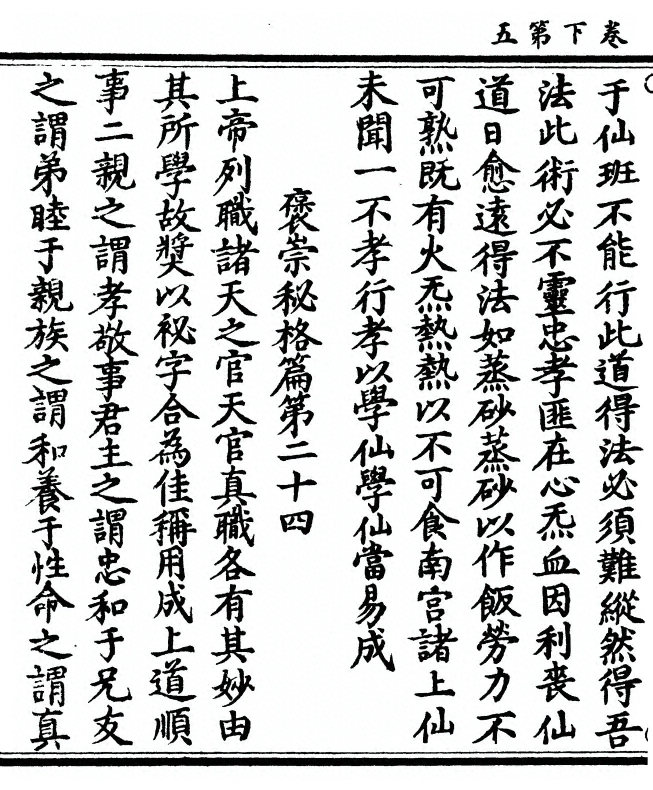 卷下第五
于仙班不能行此道得法必須難縱然得吾
法此術必不靈忠孝匪在心炁血因利喪仙
道日愈遠得法如蒸砂蒸砂以作飯勞力不
可熟既有火炁熱熱以不可食南宫諸上仙
未聞一不孝行孝以學仙學仙當易成
褒崇秘格篇第二十四
上帝列職諸天之官天官真職各有其妙由
其所學故奬以祕字合為佳稱用成上道順
事二親之謂孝敬事君主之謂忠和于兄友
之謂弟睦于親族之謂和養于性命之謂真